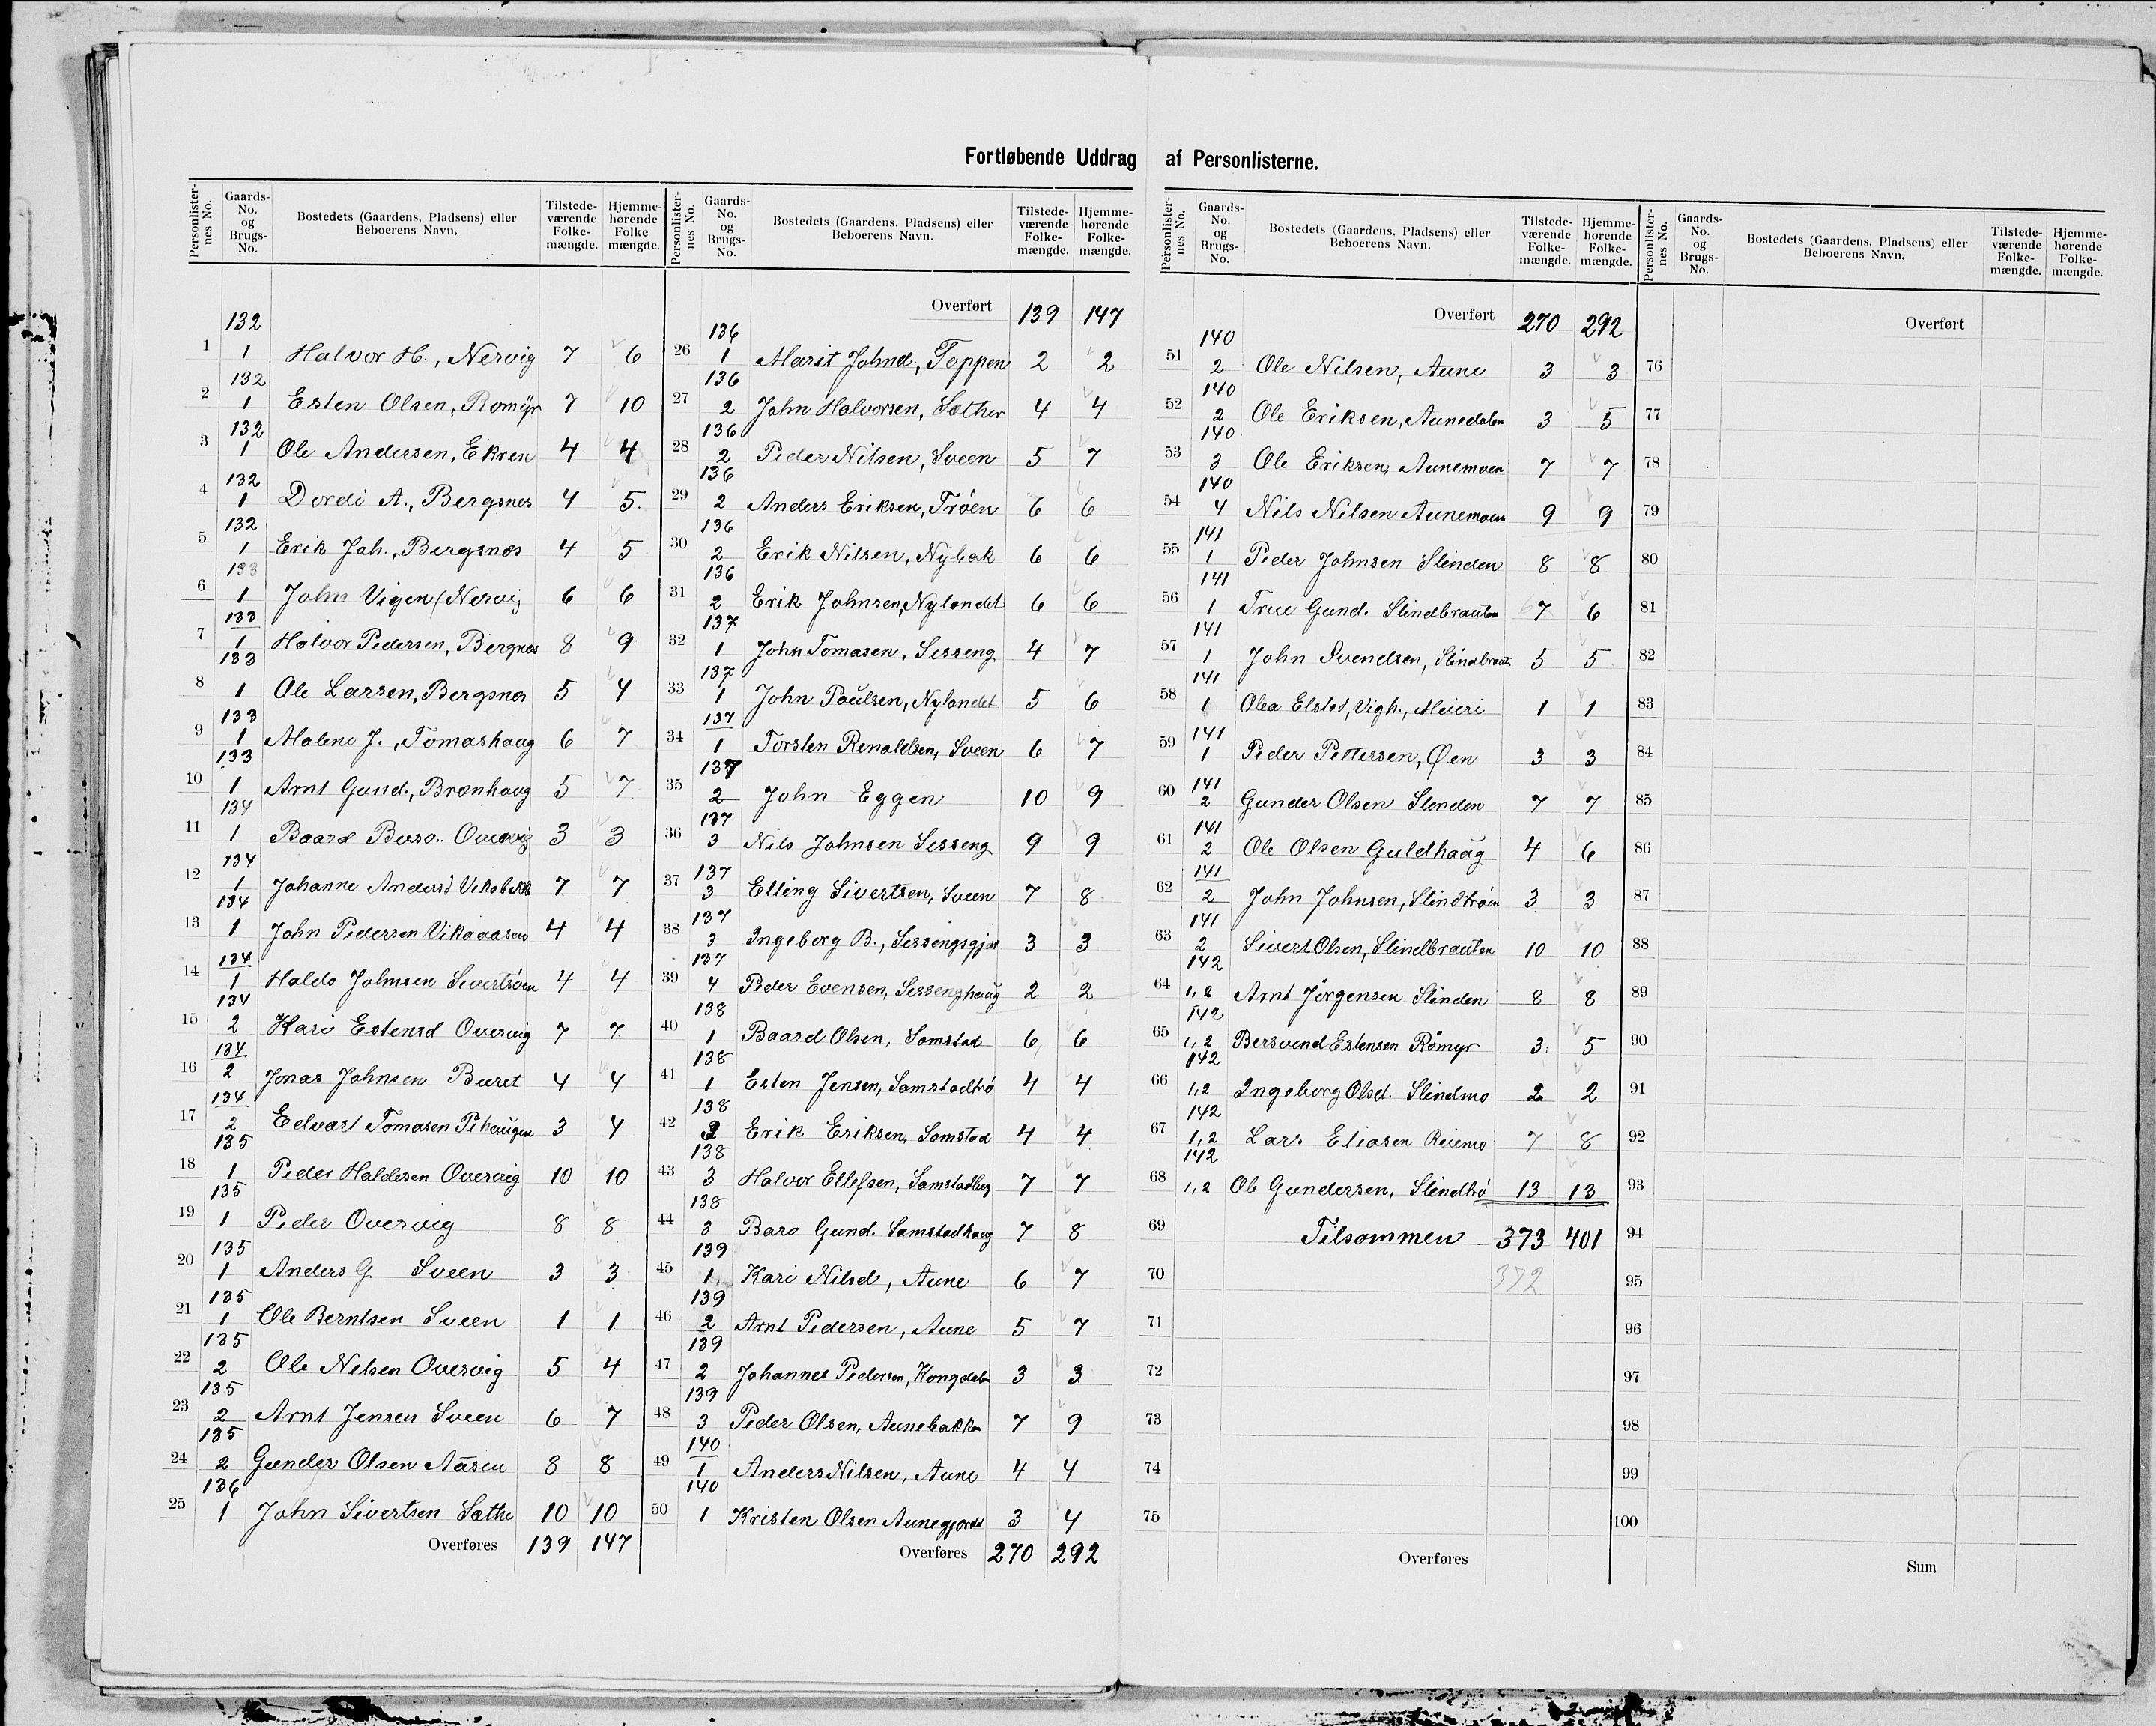 Fortløbende Uddrag af Personlisterne.
Personlisternes No. Gaards-No. og Brugs-No. Bostedets (Gaardens, Pladsens) eller Beboerens Navn. Tilstedeværende Folkemængde. Hjemmehørende Folkemængde.
132
1 1 Halvor H., Nervig 7 6
132
2 1 Esten Olsen, Romyr 7 10
132
3 1 Ole Andersen, Ekren 4 4
132
4 1 Dordi A., Bergsnes 4 5
132
5 1 Erik Joh., Bergsnes 4 5
133
6 1 John Vigen (Nervig 6 6
133
7 1 Halvor Pedersen, Bergnes 8 9
133
8 1 Ole Larsen, Bergsnes 5 4
133
9 1 Malene J., Tomashaug 6 7
133
10 1 Arnt Gund., Brønhaug 5 7
134
11 1 Baard 3 3
134
12 1 Johanne Andersd 7 7
134
13 1 John Pedersen Vikaaasen 4 4
134
14 1 Haldo Johnsen Sivertrøen 4 4
134
15 2 Kari Estensd Overvig 7 7
134
16 2 Jonas Johnsen Buret 4 4
134
17 2 Edvart Tomasen 3 4
135
18 1 Peder Haldosen Overvig 10 10
135
19 1 Peder Overvig 8 8
135
20 1 Anders G Sveen 3 3
135
21 1 Ole Berntsen Sveen 1 1
135
22 2 Ole Nilsen Overvig 5 4
135
23 2 Arnt Jensen Sveen 6 7
135
24 2 Gunder Olsen Aasen 8 8
136
25 1 John Sivertsen Sæthe 10 10
Overføres 139 147
Personlisternes No. Gaards-No. og Brugs-No. Bostedets (Gaardens, Pladsens) eller Beboerens Navn. Tilstedeværende Folkemængde. Hjemmehørende Folkemængde.
Overført 139 147
136
26 1 Marit Johnd, Toppen 2 2
136
27 2 John Halvorsen, Sæther 4 4
136
28 2 Peder Nilsen, Sveen 5 7
136
29 2 Anders Eriksen, Trøen 6 6
136
30 2 Erik Nilsen, Nybak 6 6
136
31 2 Erik Johnsen, Nylandet 6 6
137
32 1 John Tomasen, Sesseng 4 7
137
33 1 John Paulsen, Nylandet 5 6
137
34 1 Torsten Renaldsen, Sveen 6 7
137
35 2 John Eggen 10 9
137
36 3 Nils Johnsen Sesseng 9 9
137
37 3 Elling Sivertsen, Sveen 7 8
137
38 3 Ingeborg B., Sessengsgjær 3 3
137
39 4 Peder Evensen, Sessenghaug 2 2
138
40 1 Baard Olsen, Samstad 6 6
138
41 1 Esten Jensen, Samstadtrø 4 4
138
42 2 Erik Eriksen, Samstad 4 4
138
43 3 Halvor Ellefsen, Samstadberg 7 7
138
44 3 Baro Gund. Samstadhaug 7 8
139
45 1 Kari Nilsd, Aune 6 7
139
46 2 Arnt Pedersen, Aune 5 7
139
47 2 Johannes Pedersen, Kongdalen 3 3
139
48 3 Peder Olsen, Aunebakken 7 9
140
49 1 Anders Nilsen, Aune 4 4
140
50 1 Kristen Olsen Aunegjærdet 3 4
Overføres 270 292
Personlisternes No. Gaards-No. og Brugs-No. Bostedets (Gaardens, Pladsens) eller Beboerens Navn. Tilstedeværende Folkemængde. Hjemmehørende Folkemængde.
Overført 270 292
140
51 2 Ole Nilsen, Aune 3 3
140
52 2 Ole Eriksen, Aunedalen 3 5
140
53 3 Ole Eriksen, Aunemoen 7 7
140
54 4 Nils Nilsen Aunemoen 9 9
141
55 1 Peder Johnsen Slinden 8 8
141
56 1 True Gund. Slindbrauten 7 6
141
57 1 John Svendsen, Slindbraut 5 5
141
58 1 Olea Elstad, Vigh., Meieri 1 1
141
59 1 Peder Pettersen, Øen 3 3
141
60 2 Gunder Olsen Slinden 7 7
141
61 2 Ole Olsen Guldhaug 4 6
141
62 2 John Johnsen, Slindtrøen 3 3
141
63 2 Sivert Olsen, Slindbrauten 10 10
142
64 1,2 Arnt Jørgensen Slinden 8 8
142
65 1,2 Bersvend Estensen Römyr 3 5
142
66 1,2 Ingeborg Olsd. Slindmo 2 2
142
67 1,2 Lars Eliasen Reiemo 7 8
142
68 1,2 Ole Gundersen, Slindtrø 13 13
69 Tilsammen 373 401
70 372
71
72
73
74
75
Overføres
Personlisternes No. Gaards-No. og Brugs-No. Bostedets (Gaardens, Pladsens) eller Beboerens Navn. Tilstedeværende Folkemængde. Hjemmehørende Folkemængde.
Overført
76
77
78
79
80
81
82
83
84
85
86
87
88
89
90
91
92
93
94
95
96
97
98
99
100
Sum